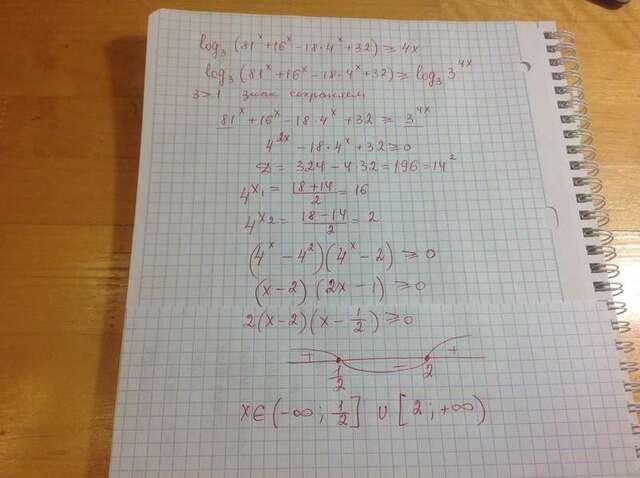 log₃(81ˣ+16ˣ-18·4ˣ+32)≥4x
log₃(81ˣ+16ˣ-18·4ˣ+32)≥log₃3⁴ˣ
3>1 знак сохраняем
81ˣ+16ˣ-18·4ˣ+32≥3⁴ˣ
4²ˣ-18·4ˣ+32≥0
D=324-4·32=196=14²
4ˣ¹=(18+14)/2=16
4ˣ²=(18-14)/2=2
(4ˣ-4²)(4ˣ-2)≥0
(x-2)(2x-1)≥0
2(x-2)(x-1/2)≥0
+ - +
1/2 2
x∈(-∞;1/2]∪[2;+∞)